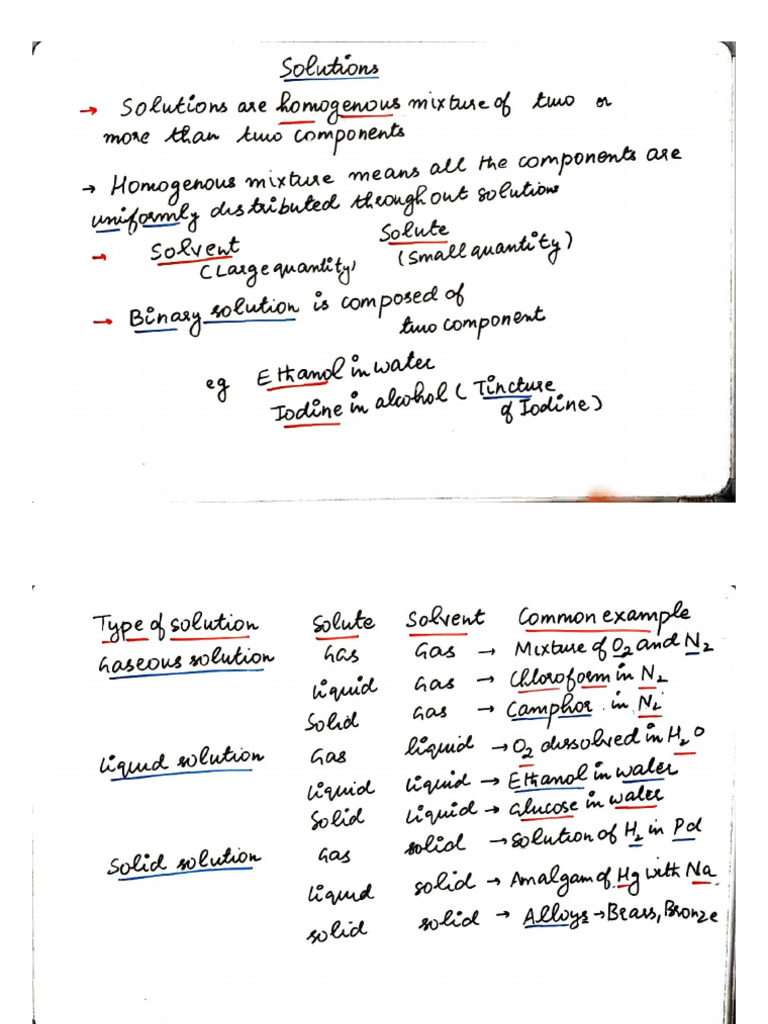 Solutions
→ Solutions are homogenous mixture of two or
more than two components
→ Homogenous mixture means all the components are
uniformly distributed throughout solution
→ Solvent Solute
(Large quantity) (Small quantity)
→ Binary solution is composed of
two component
eg Ethanol in water
Iodine in alcohol (Tincture
of Iodine)
Type of solution Solute Solvent Common example
Gaseous solution Gas Gas → Mixture of O2 and N2
liquid Gas → Chloroform in N2
Solid Gas → Camphor in N2
Liquid solution Gas liquid → O2 dissolved in H2O
liquid liquid → Ethanol in water
Solid liquid → Glucose in water
Solid solution Gas solid → Solution of H2 in Pd
liquid solid → Amalgam of Hg with Na
solid solid → Alloys → Brass, Bronze